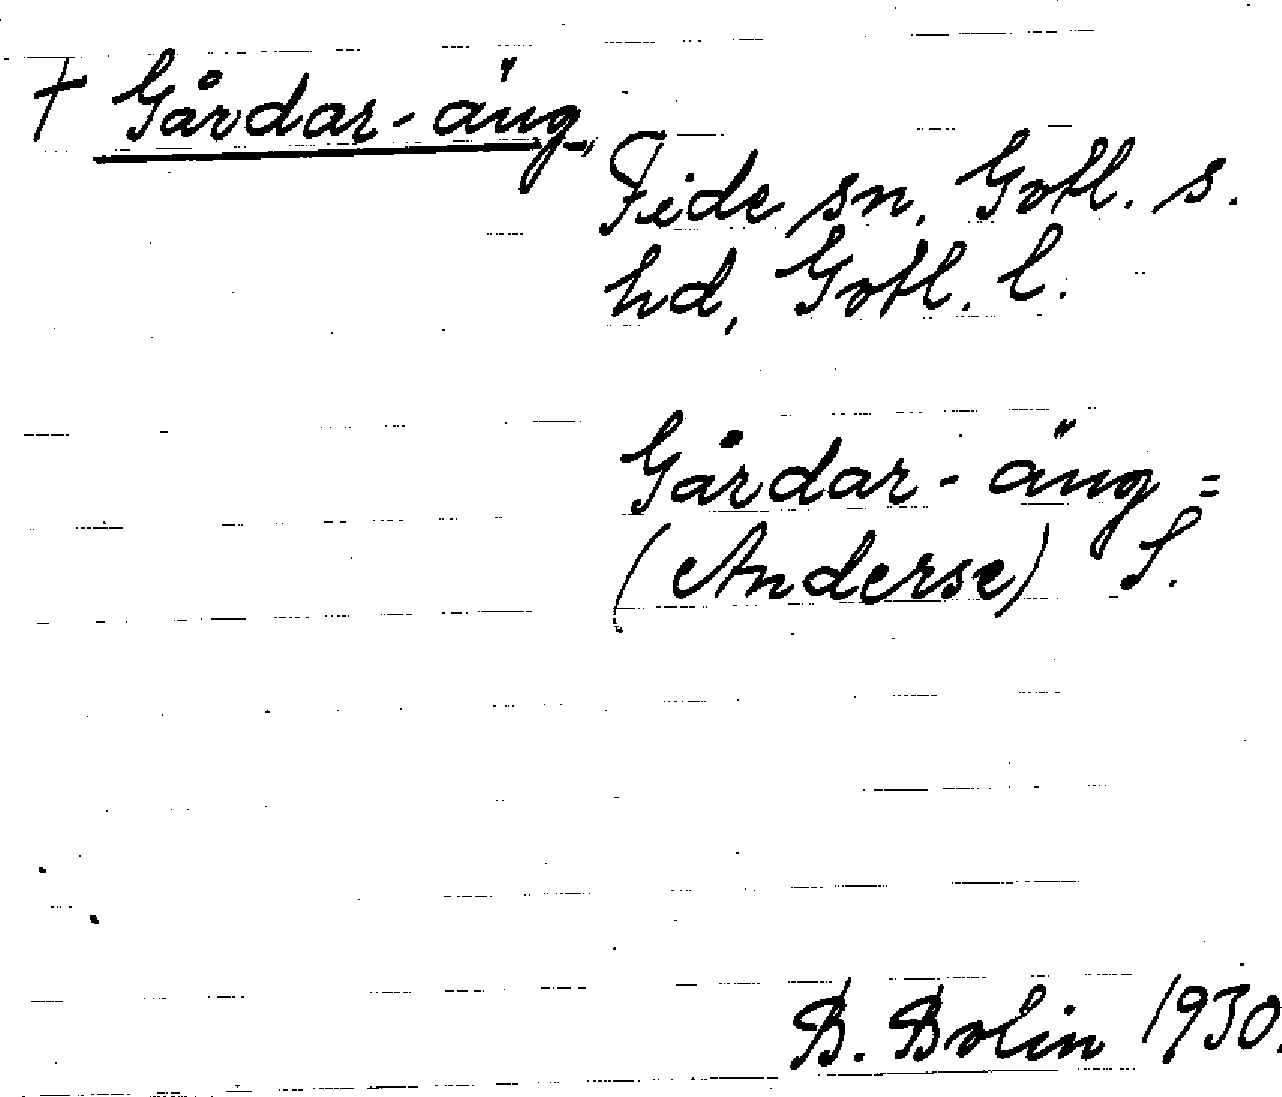 † Gårdar-äng,
Fide sn, Gotl. s.
hd, Gotl. l.
Gårdar-äng =
(Anderse) S.
B. Bolin 1930.